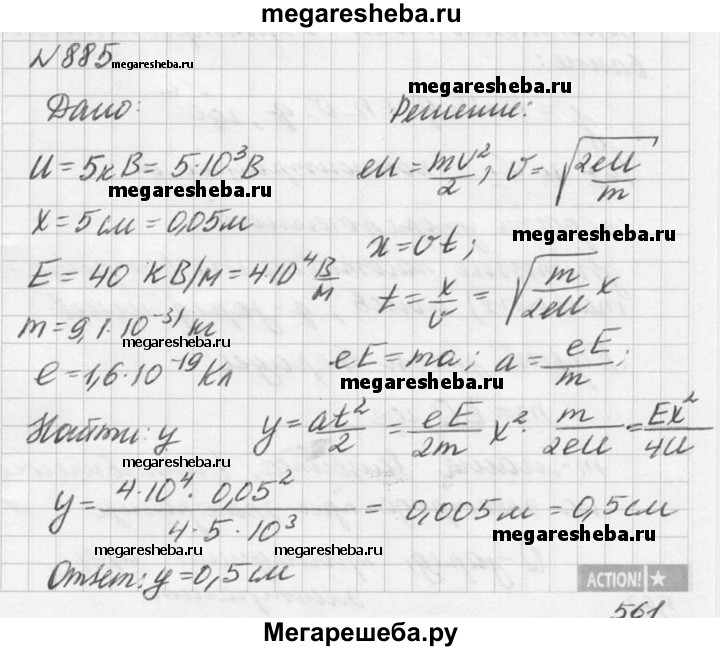 megaresheba.ru
N885 megaresheba.ru
megaresheba.ru
Дано: Решение:
U = 5кВ = 5·10³В eU = mv²/2; v = √(2eU/m)
megaresheba.ru
X = 5 см = 0,05м x = vt; megaresheba.ru
E = 40 кВ/м = 4·10⁴ В/м t = x/v = √(m/2eU) x
m = 9,1·10⁻³¹ кг
megaresheba.ru
e = 1,6·10⁻¹⁹ Кл eE = ma; a = eE/m;
megaresheba.ru
Найти: y y = at²/2 = eE/2m x² · m/2eU = Ex²/4U
megaresheba.ru megaresheba.ru
y = 4·10⁴·0,05²/4·5·10³ = 0,005м = 0,5см
megaresheba.ru megaresheba.ru
Ответ: y = 0,5 см
ACTION!
561
Мегарешеба.ру